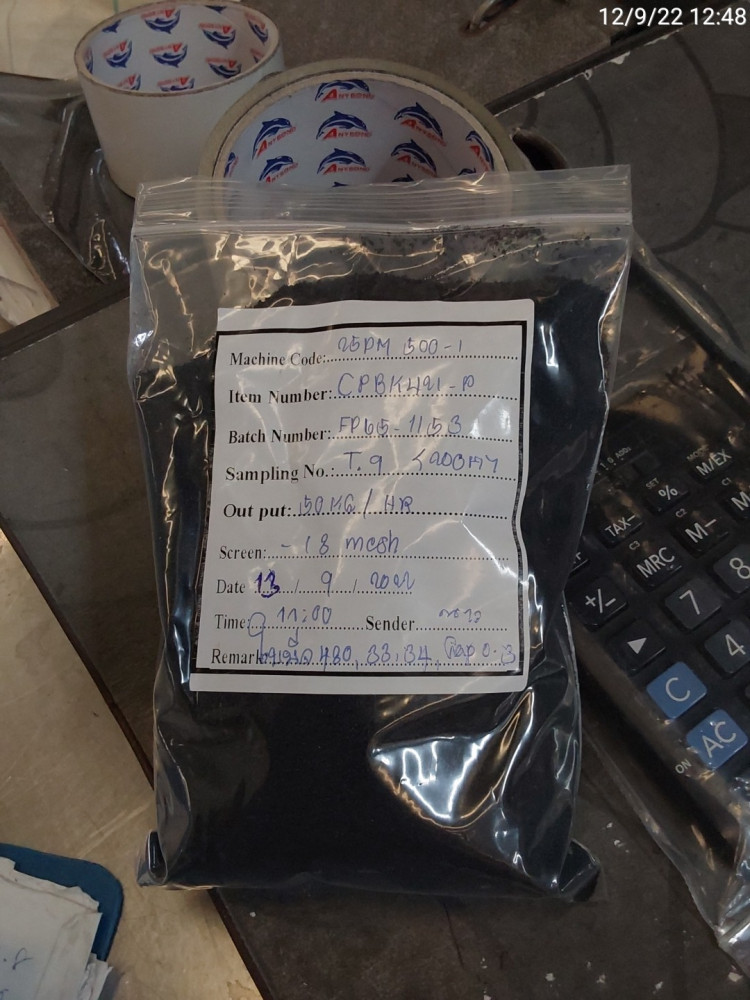 12/9/22 12:48
ANYBOND
Machine Code: 25PM 500-1
Item Number: CPBK421-P
Batch Number: FP65-1153
Sampling No.: T.9
Out put: 150 KG / HR
Screen: -18 mesh
Date / 9 / 2022
Time: 11:00 Sender
Remark 33, 34, 0.3
M/EX
%
TAX-
M-
MRC
+/-
7
8
4
C
AC
ON